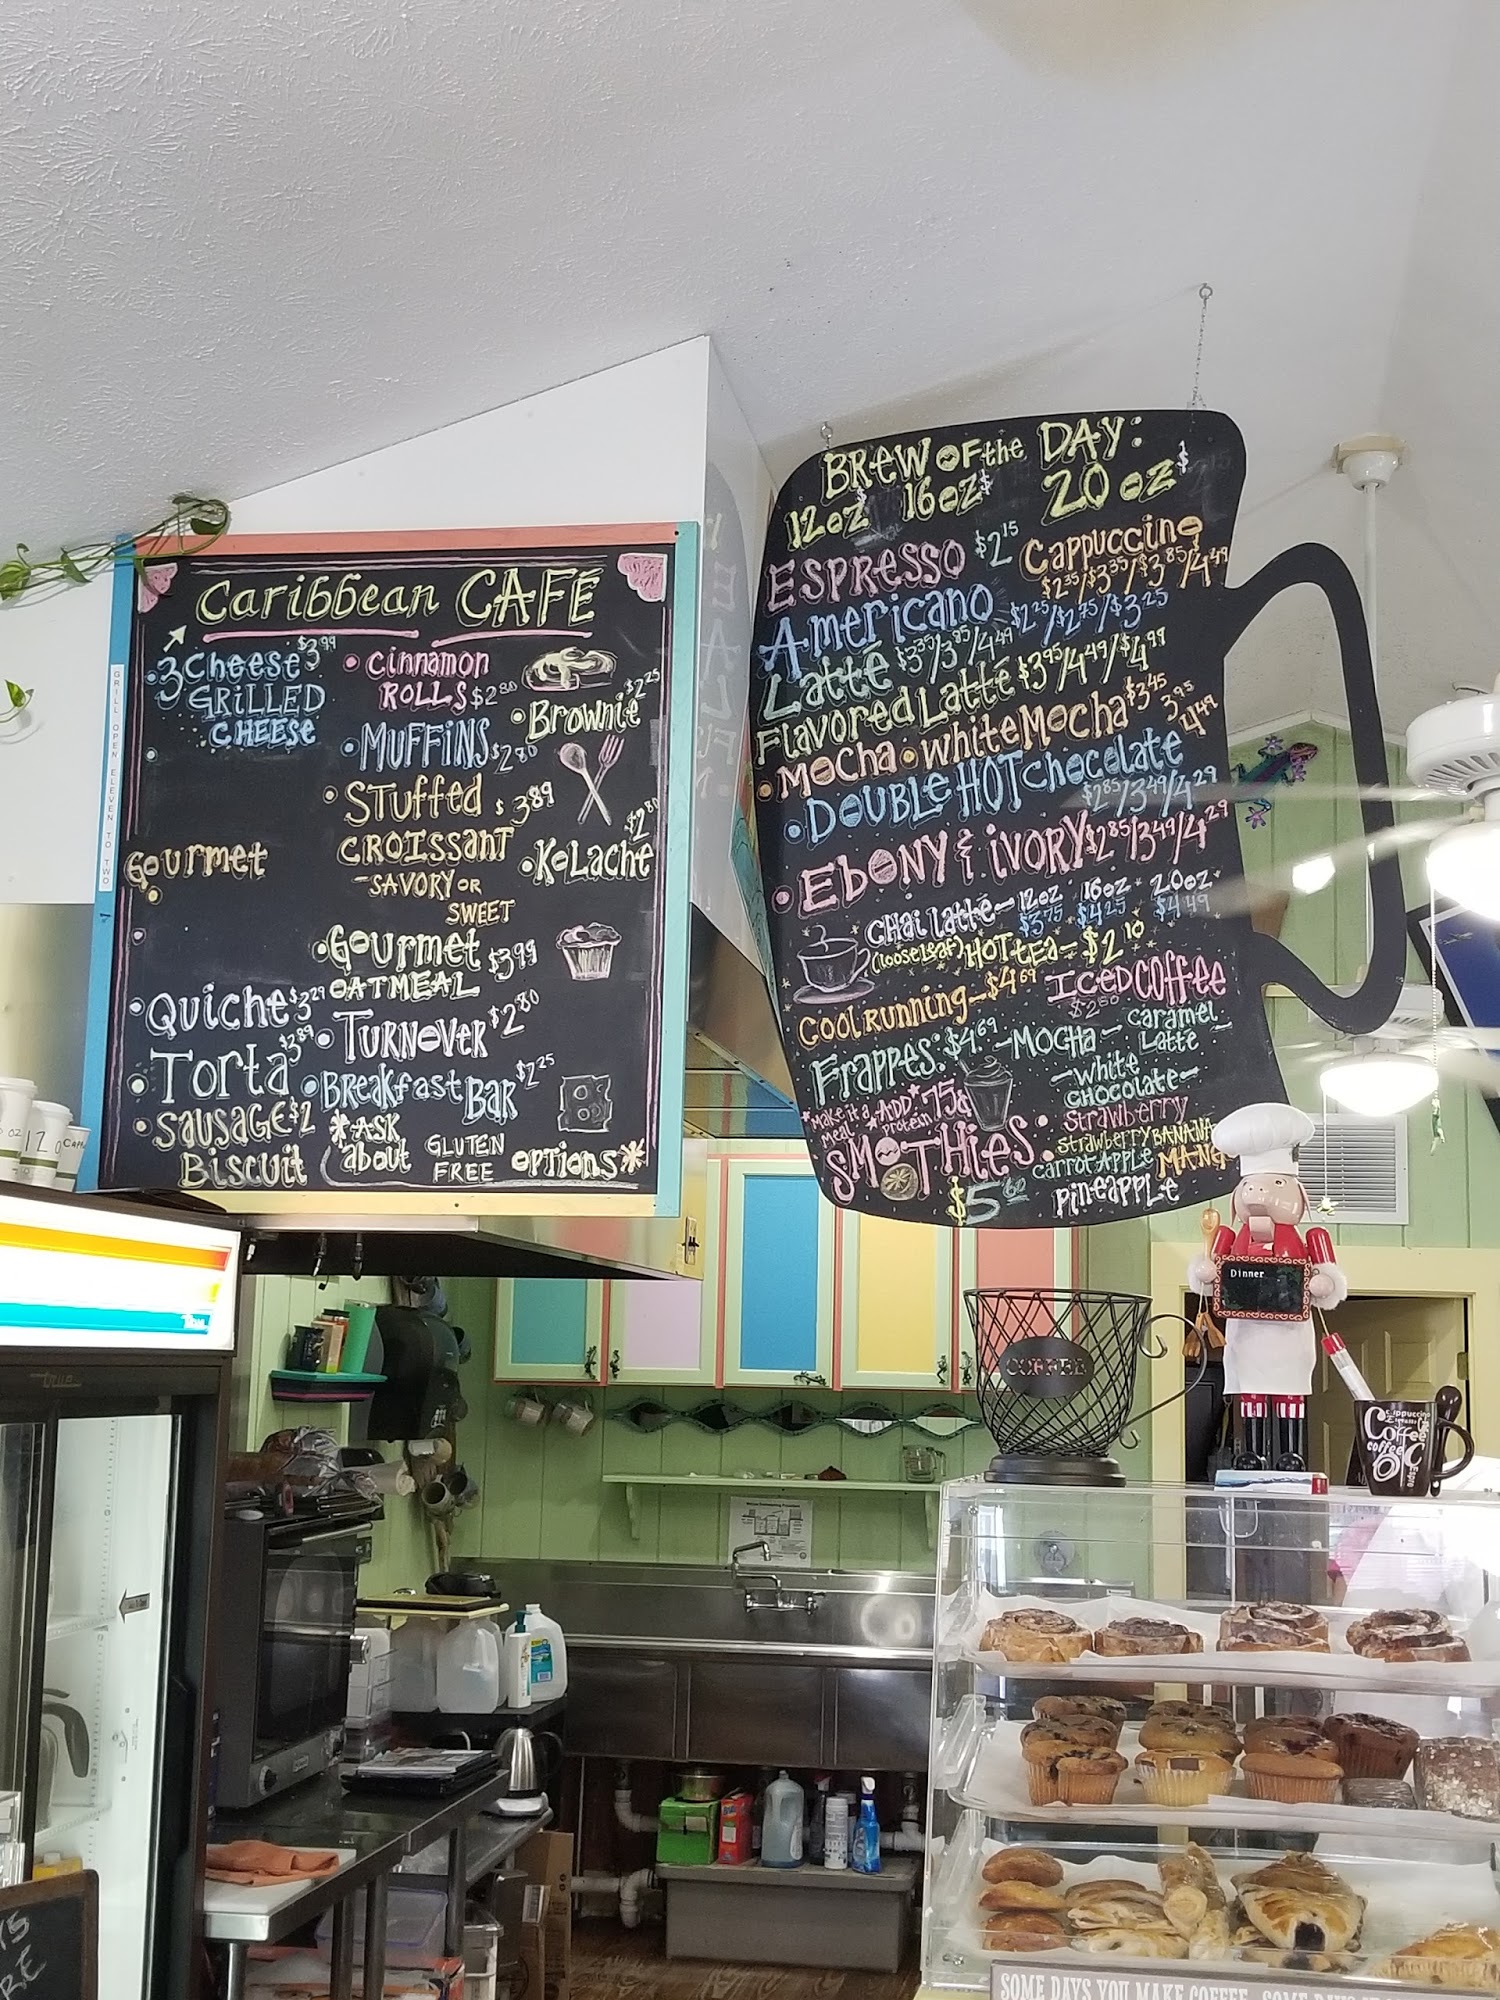 Caribbean CAFÉ
3 Cheese $3.99
GRILLED
CHEESE
Gourmet
Quiche $3.29
Torta $3.89
SAUSAGE $2
BISCUIT
Cinnamon
ROLLS $2.80
MUFFINS $2.80
STUFFED $3.89
CROISSANT
-SAVORY OR
SWEET
Gourmet $3.99
OATMEAL
TURNOVER $2.80
BREAKFAST BAR $2.25
*ASK about GLUTEN FREE OPTIONS*
Brownie $2.25
KOLACHE $2.80
GRILL OPEN ELEVEN TO TWO
BREW OF the DAY:
12oz $ 16oz $ 20oz $
ESPRESSO $2.15
Cappuccino
$2.35/$3.35/$3.85/4.49
Americano $2.25/$2.75/$3.25
Latté $3.35/3.85/4.49
Flavored Latté $3.95/4.49/$4.99
Mocha • white Mocha $3.45 3.95 4.49
DOUBLE HOT chocolate
$2.85/3.49/4.29
EBONY & IVORY $2.85/3.49/4.29
CHai latté- 12oz 16oz 20oz
$3.75 $4.25 $4.49
(loose leaf) HOT tea- $2.10
COOL RUNNING- $4.69
ICED COFFEE
$2.80
Frappes: $4.69 -MOCHA- Caramel Latte
-White
CHOCOLATE-
*Make it a meal* *ADD protein* .75¢
SMOTHIES:
$5.60
Strawberry
Strawberry BANANA
CARROT APPLE MANG
PINEAPPLE
Dinner
COFFEE
Cappuccino
Coffee
coffee
SOME DAYS YOU MAKE COFFEE